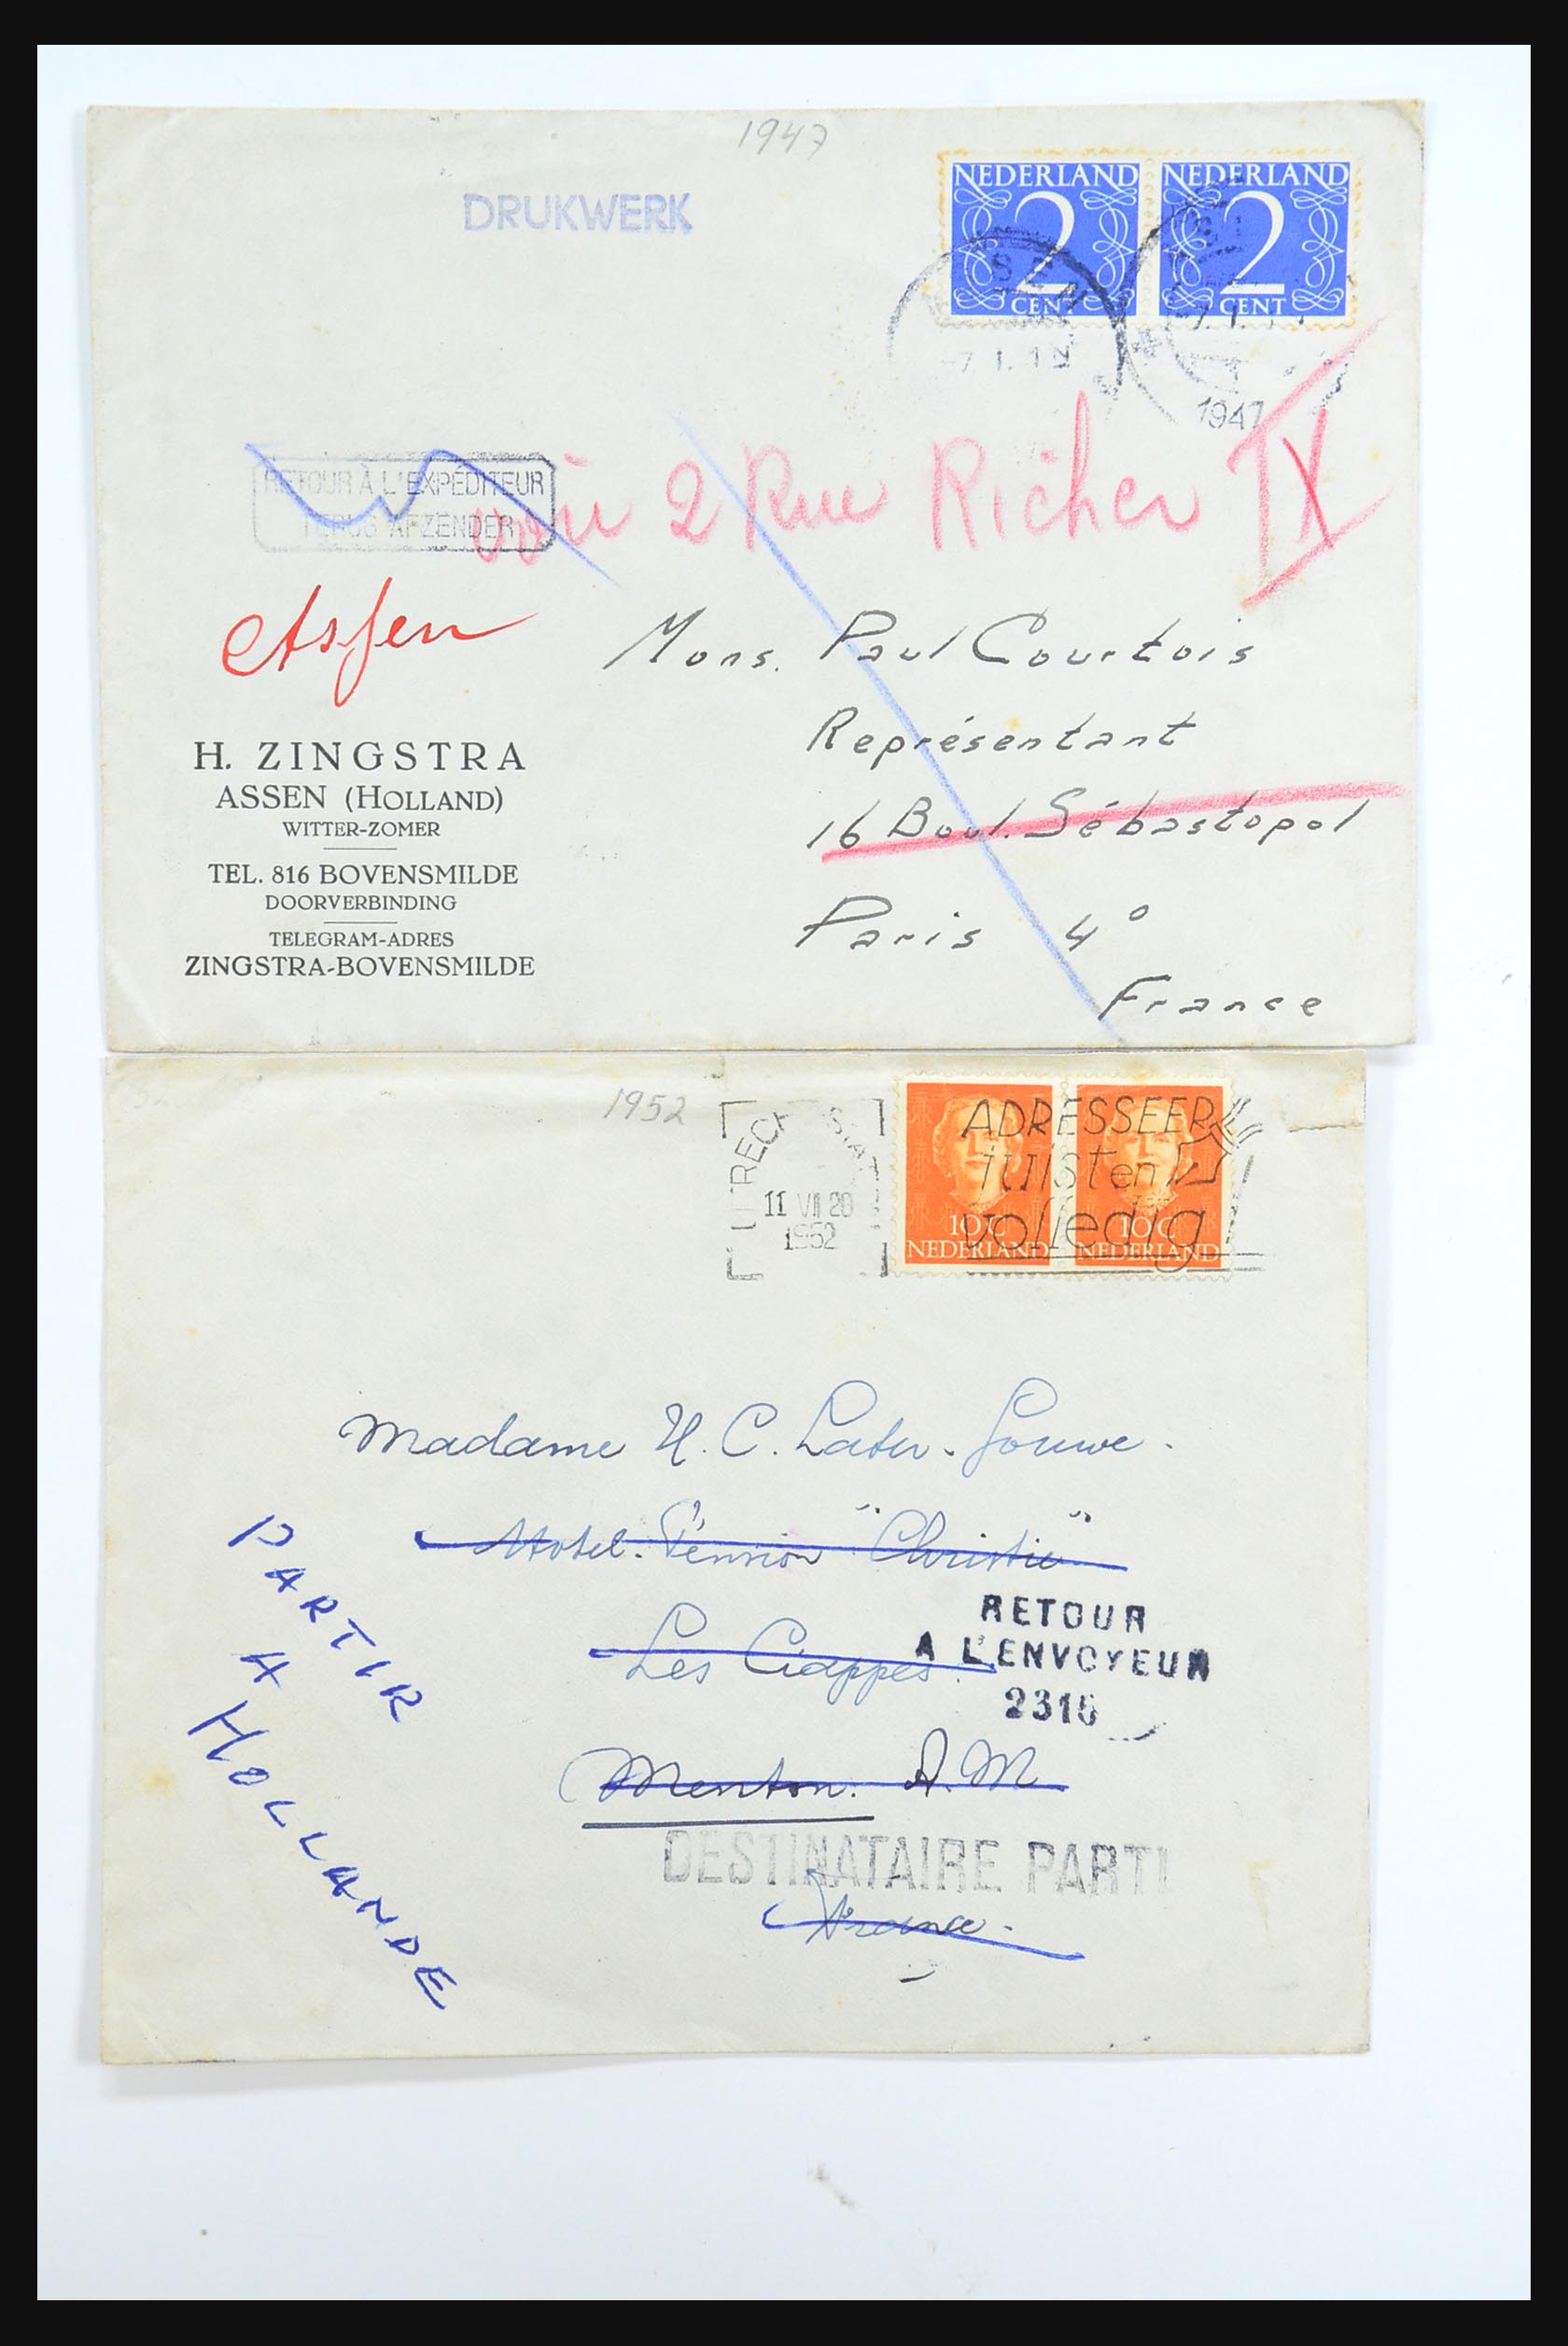 1947
DRUKWERK
NEDERLAND NEDERLAND
2 2
CENT CENT
7.1.
1947
RETOUR À L'EXPÉDITEUR
TERUG AFZENDER
voir 2 Rue Richer IX
Assen
Mons. Paul Courtois
Représentant
16 Boul. Sébastopol
Paris 4°
France
H. ZINGSTRA
ASSEN (HOLLAND)
WITTER-ZOMER
TEL. 816 BOVENSMILDE
DOORVERBINDING
TELEGRAM-ADRES
ZINGSTRA-BOVENSMILDE
1952
UTRECHT STAT
11 VII 20
1952
ADRESSEER
juist en
volledig
10 C 10 C
NEDERLAND NEDERLAND
Madame H. C. Later-Louwe.
Hotel-Pension "Christie"
Les Ciappes.
Menton. A.M
France.
RETOUR
A L'ENVOYEUR
2316
DESTINATAIRE PARTI
PARTIR
A
HOLLANDE